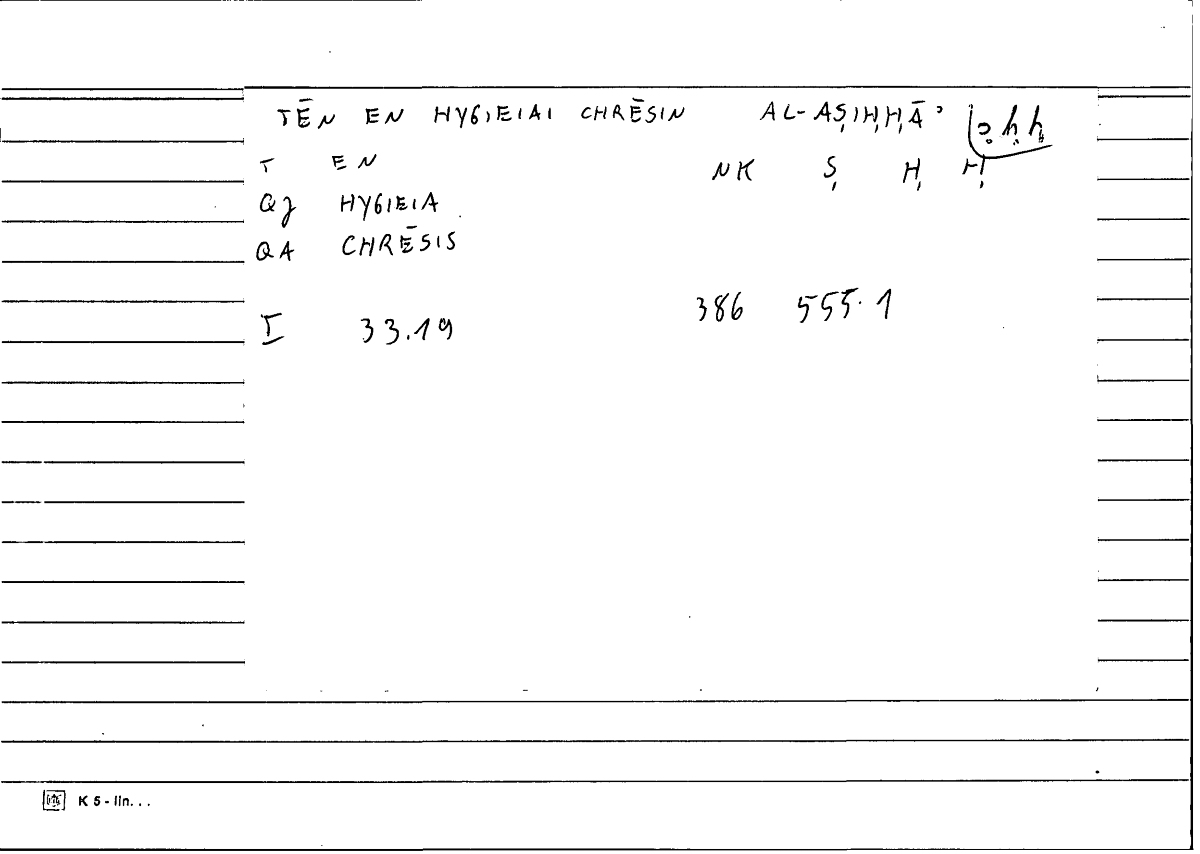 TĒN EN HYGIEIAI CHRĒSIN AL-AṢIḤḤĀʾ ṣḥḥ
T EN NK Ṣ Ḥ Ḥ
QJ HYGIEIA
QA CHRĒSIS
I 33.19 386 555.1
K 5 - lin. . .